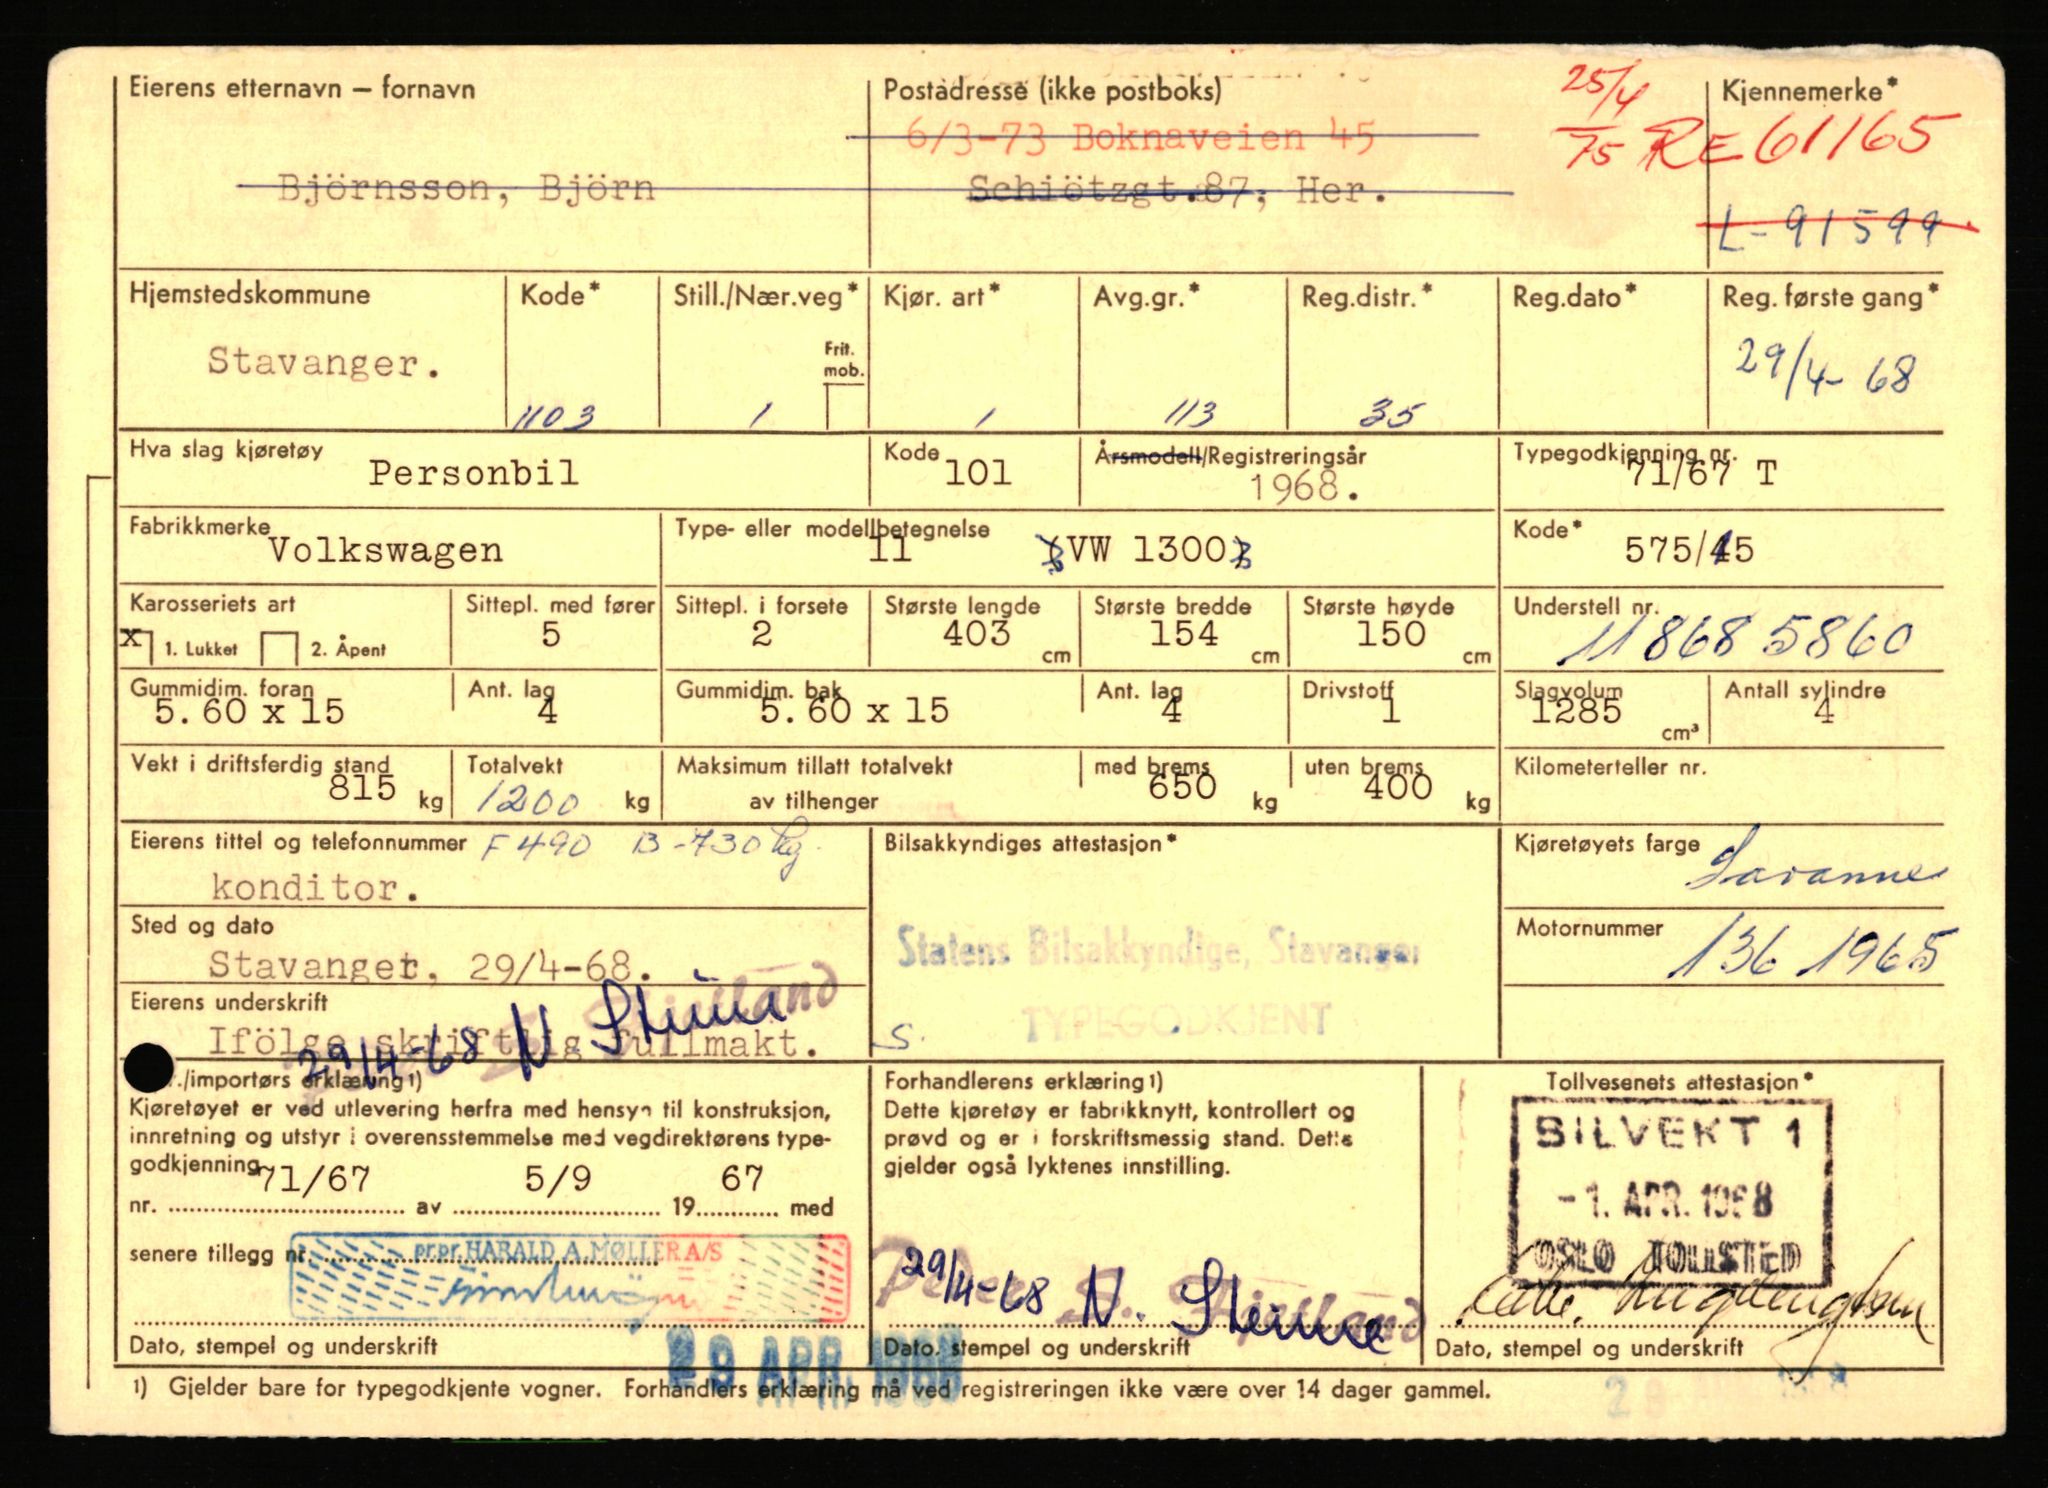 Eierens etternavn – fornavn
Postadresse (ikke postboks)
25/4
75
Kjennemerke*
6/3-73 Boknaveien 45
RE 61165
Björnsson, Björn
Schiötzgt. 87, Her.
L-91599
Hjemstedskommune
Kode*
Still./Nær.veg*
Kjør. art*
Avg.gr.*
Reg.distr.*
Reg.dato*
Reg. første gang*
Frit. mob.
Stavanger.
1103
1
1
113
35
29/4-68
Hva slag kjøretøy
Personbil
Kode
101
Årsmodell/Registreringsår
1968.
Typegodkjenning nr.
71/67 T
Fabrikkmerke
Volkswagen
Type- eller modellbetegnelse
11 VW 1300
Kode*
575/15
Karosseriets art
x 1. Lukket 2. Åpent
Sittepl. med fører
5
Sittepl. i forsete
2
Største lengde
403 cm
Største bredde
154 cm
Største høyde
150 cm
Understell nr.
118685860
Gummidim. foran
5.60 x 15
Ant. lag
4
Gummidim. bak
5.60 x 15
Ant. lag
4
Drivstoff
1
Slagvolum
1285 cm³
Antall sylindre
4
Vekt i driftsferdig stand
815 kg
Totalvekt
1200 kg
Maksimum tillatt totalvekt
av tilhenger
med brems
650 kg
uten brems
400 kg
Kilometerteller nr.
Eierens tittel og telefonnummer F 490 B-730 kg
konditor.
Bilsakkyndiges attestasjon*
Kjøretøyets farge
Savanne
Sted og dato
Stavanger, 29/4-68.
Statens Bilsakkyndige, Stavanger
TYPEGODKJENT
S.
Motornummer
1361965
Eierens underskrift
Ifölge skriftlig fullmakt.
29/4-68 N Steina
./importørs erklæring 1)
Kjøretøyet er ved utlevering herfra med hensyn til konstruksjon,
innretning og utstyr i overensstemmelse med vegdirektørens type-
godkjenning
nr. 71/67 av 5/9 19 67 med
senere tillegg nr.
pr.pr. HARALD A. MØLLER A/S
Dato, stempel og underskrift
29 APR. 1968
Forhandlerens erklæring 1)
Dette kjøretøy er fabrikknytt, kontrollert og
prøvd og er i forskriftsmessig stand. Dette
gjelder også lyktenes innstilling.
29/4-68 N. Steina
Dato, stempel og underskrift
Tollvesenets attestasjon*
BILVEKT 1
-1. APR. 1968
OSLO TOLLSTED
Dato, stempel og underskrift
1) Gjelder bare for typegodkjente vogner. Forhandlers erklæring må ved registreringen ikke være over 14 dager gammel.